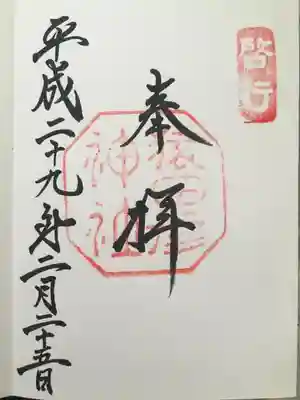 啓行
奉拝
神社
平成二十九年二月二十五日